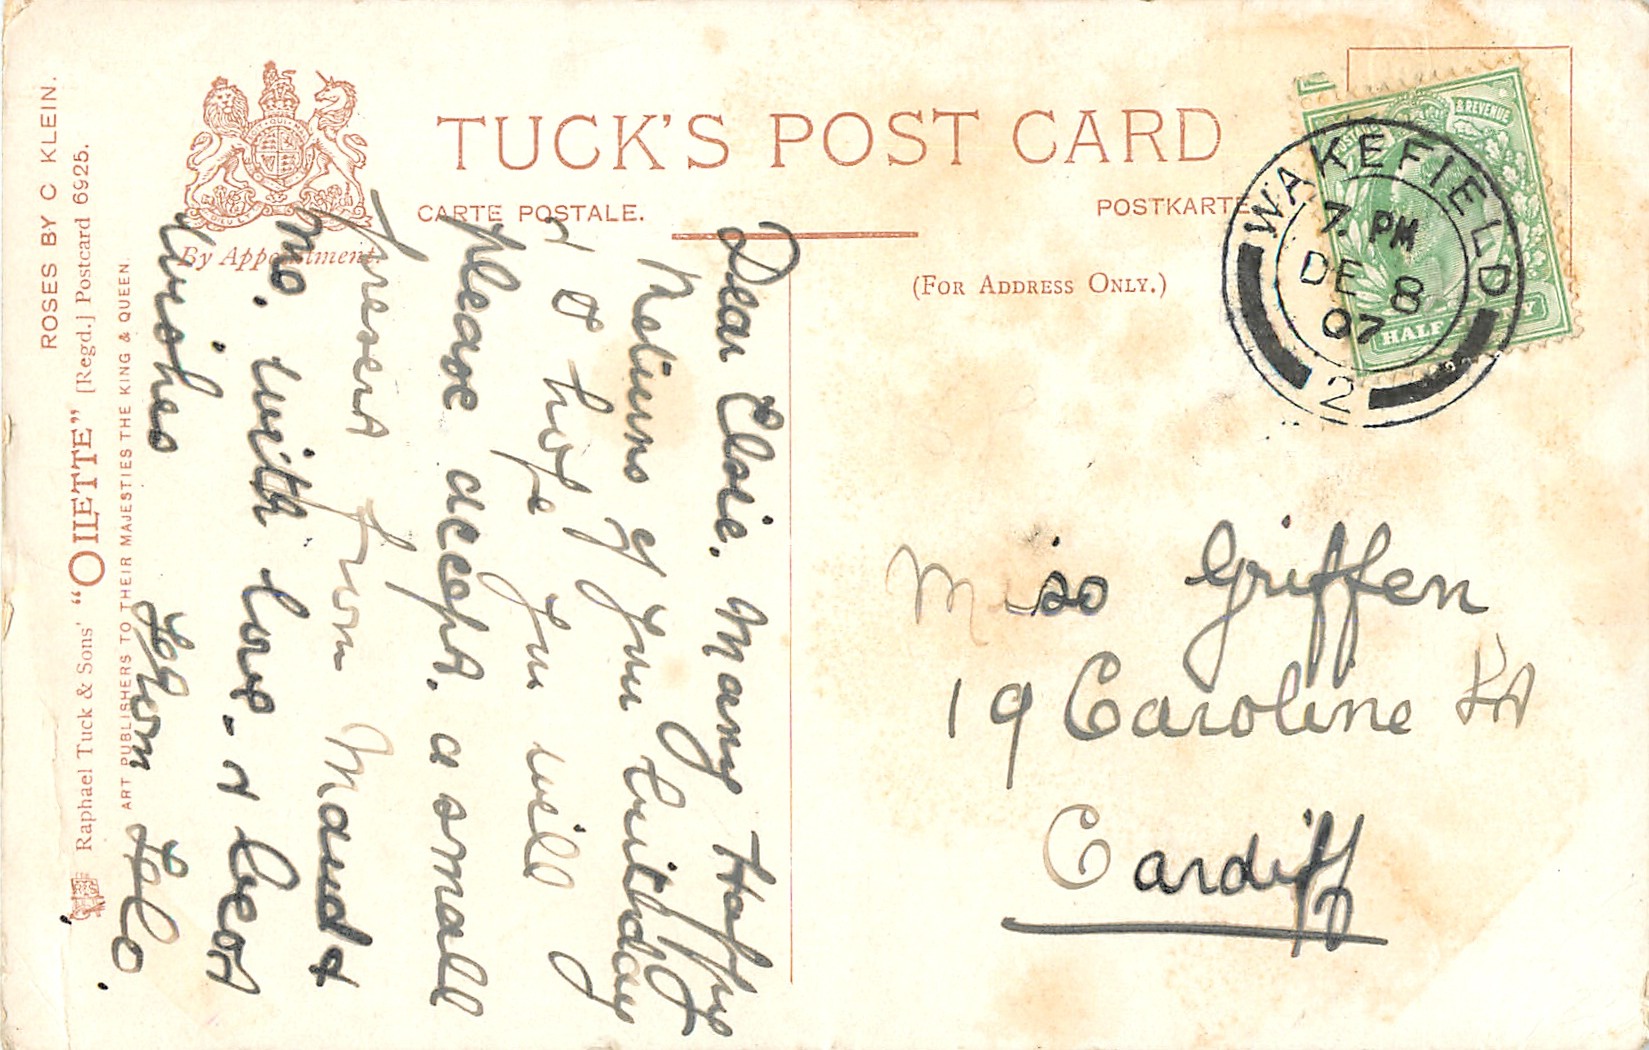 TUCK'S POST CARD
CARTE POSTALE.
POSTKARTE
By Appointment.
(FOR ADDRESS ONLY.)
& REVENUE
HALF PENNY
WAKEFIELD
7. PM
DE 8
07
2
ROSES BY C KLEIN.
Raphael Tuck & Sons' "OILETTE" [Regd.] Postcard 6925.
ART PUBLISHERS TO THEIR MAJESTIES THE KING & QUEEN.
Dear Elsie. Many Happy
Returns of your birthday
& I hope you will
please accept. a small
present from Maud &
Me. with love. & best
wishes
from
Miss Griffen
19 Caroline St
Cardiff